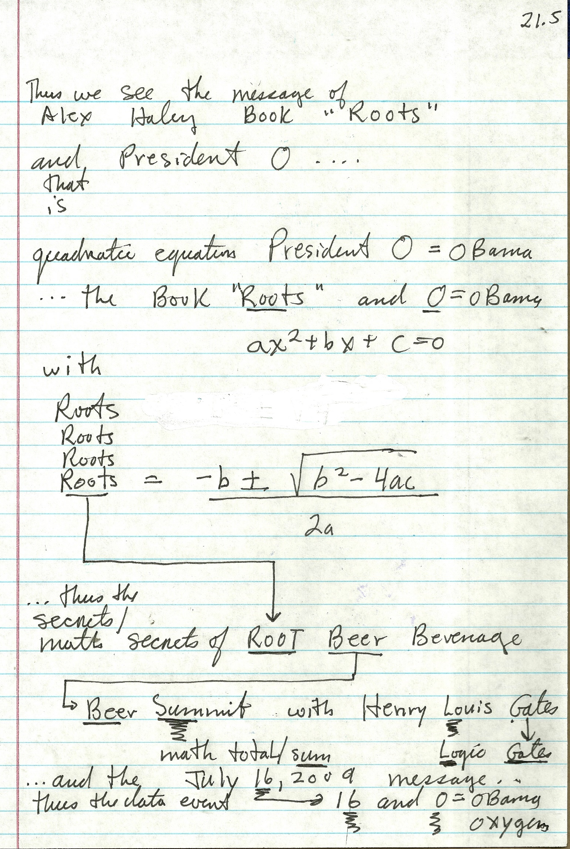 21.5
Thus we see the message of
Alex Haley Book "Roots"
and, President O ....
that
is
quadratic equations President O = OBama
... the Book "Roots" and O = OBama
ax²+bx+c=0
with
Roots
Roots
Roots
Roots = -b ± √b²-4ac
2a
... thus the
secrets/
math secrets of ROOT Beer Beverage
Beer Summit with Henry Louis Gates
math total/sum Logic Gates
...and the July 16, 2009 message...
thus the data event → 16 and O = OBama
oxygen